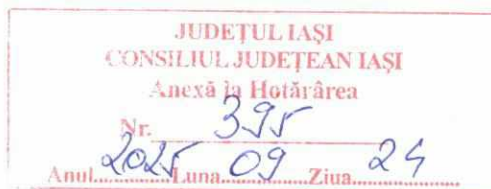 JUDEȚUL IAȘI
CONSILIUL JUDEȚEAN IAȘI
Anexă la Hotărârea
Nr. 395
Anul 2025 Luna 09 Ziua 24